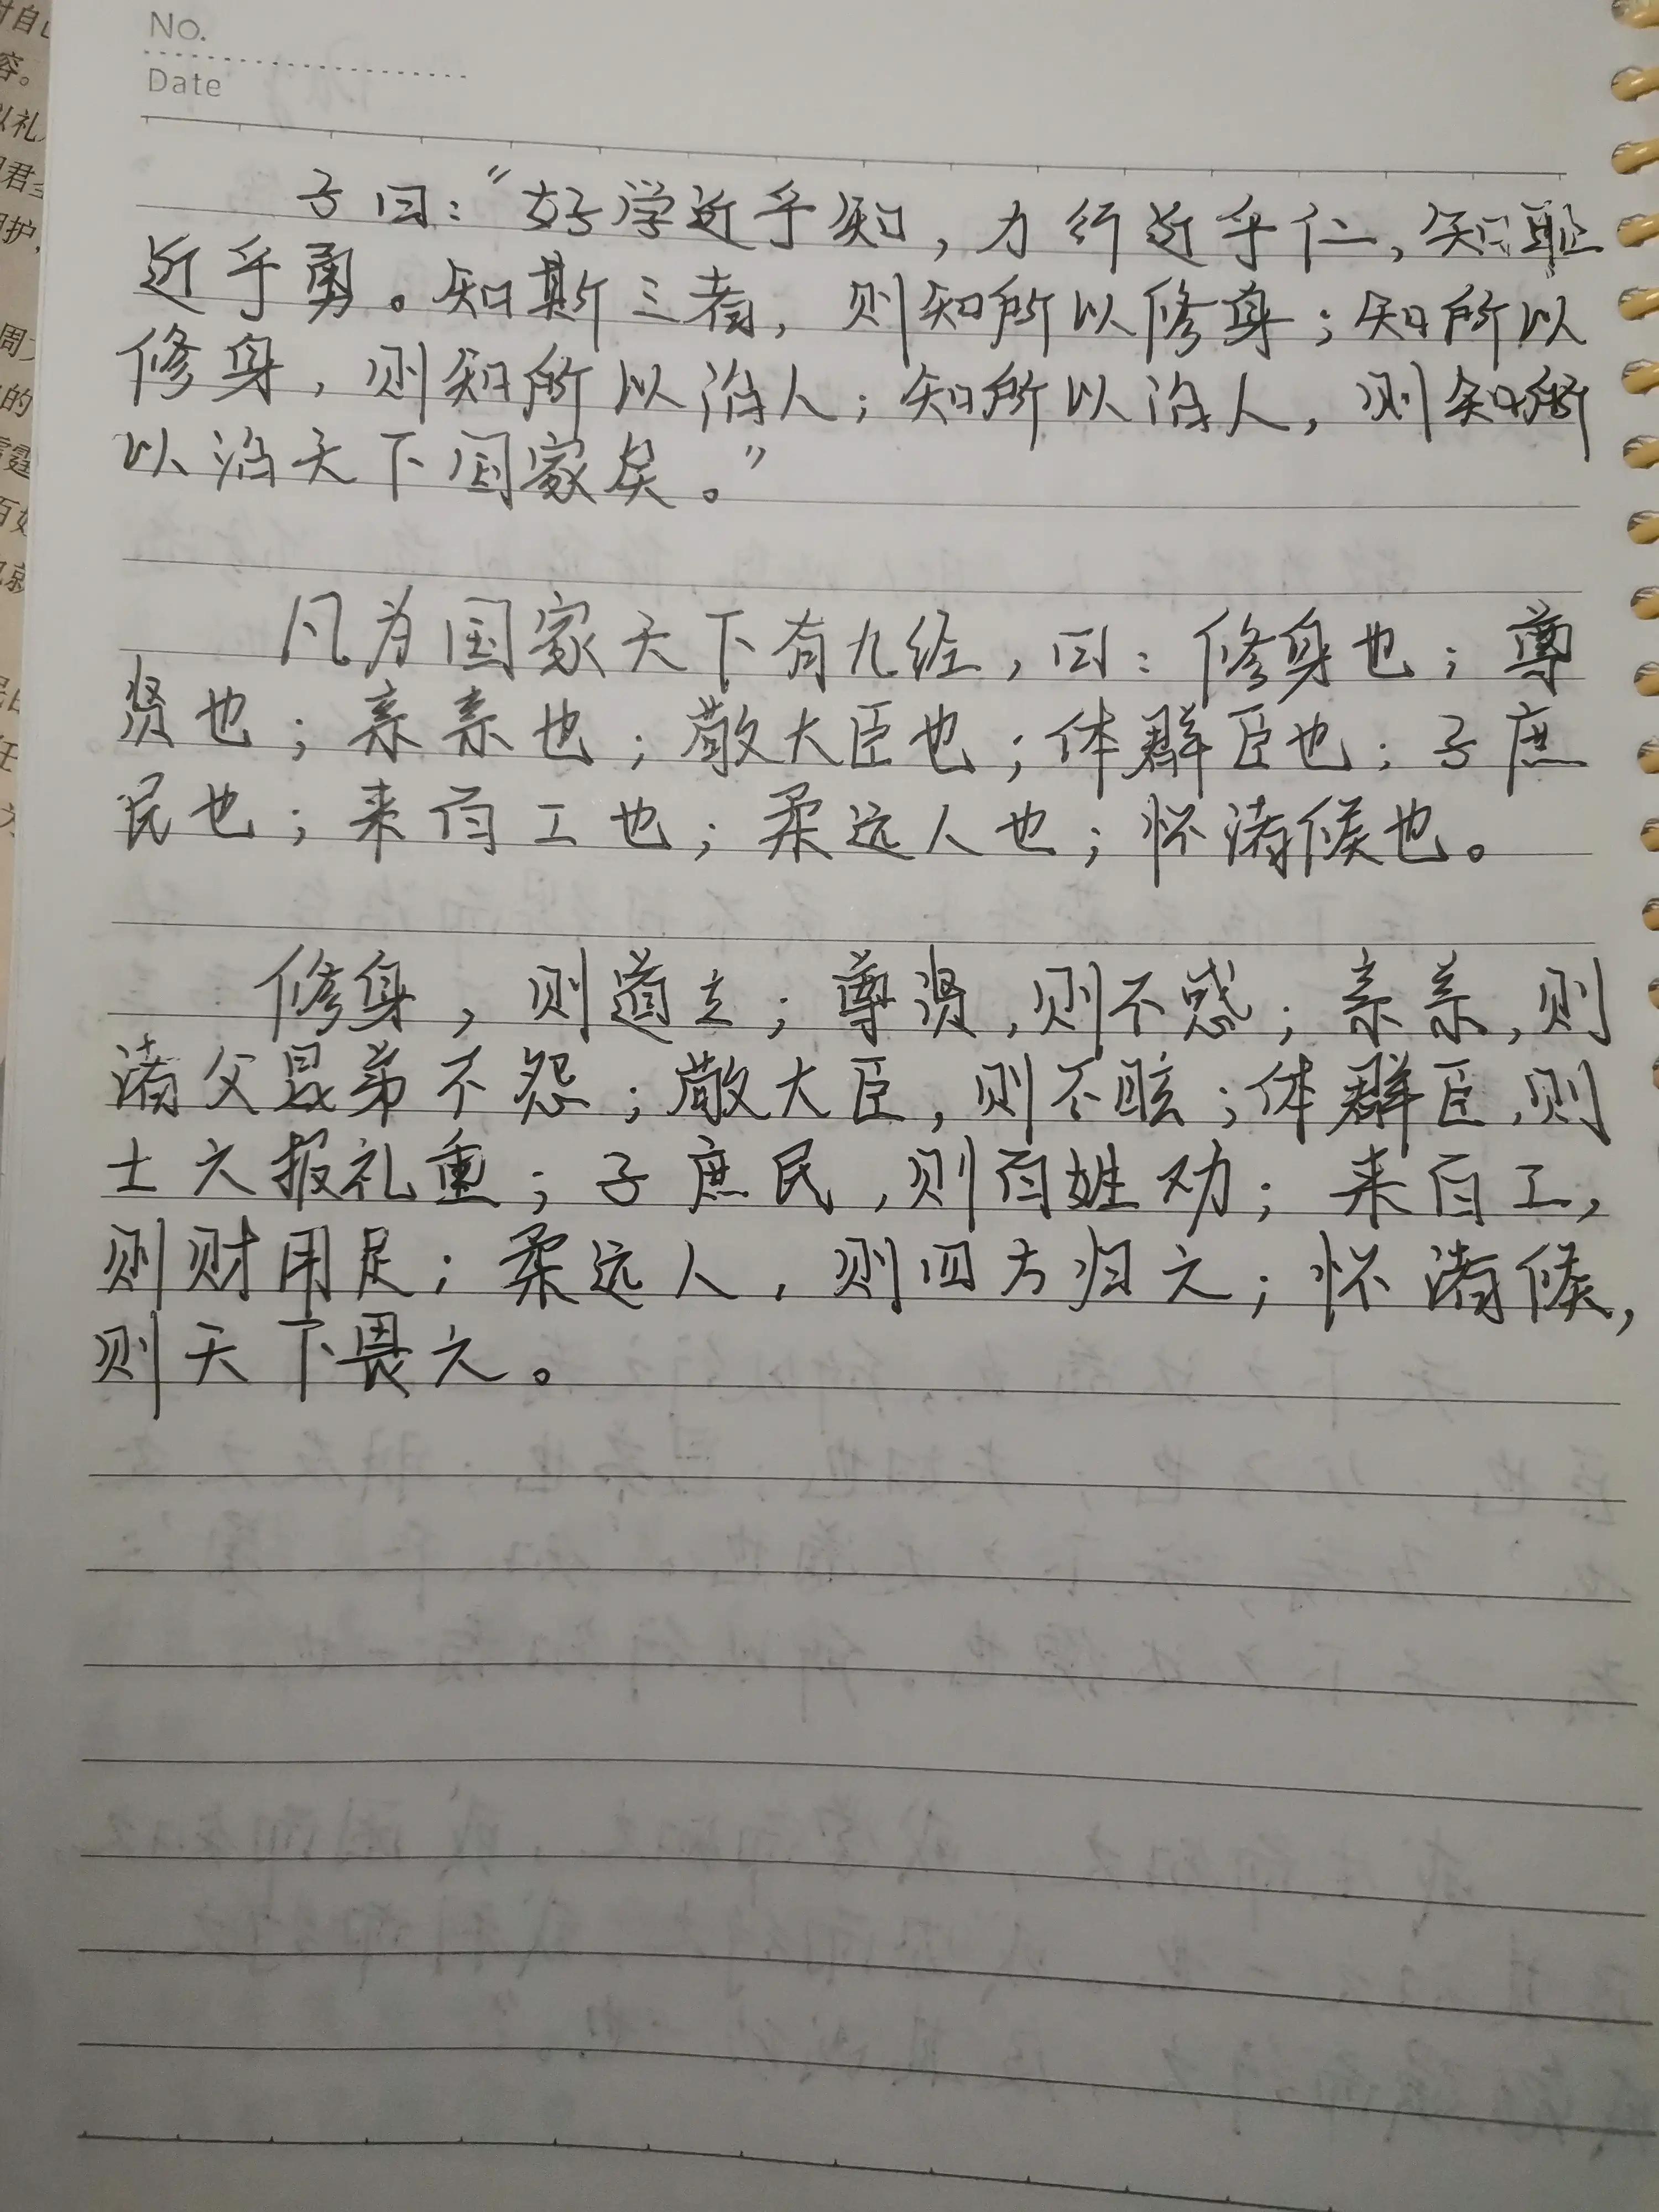 No.
Date
子曰："好学近乎知，力行近乎仁，知耻
近乎勇。知斯三者，则知所以修身；知所以
修身，则知所以治人；知所以治人，则知所
以治天下国家矣。"
凡为国家天下有九经，曰：修身也；尊
贤也；亲亲也；敬大臣也；体群臣也；子庶
民也；来百工也；柔远人也；怀诸候也。
修身，则道立；尊贤，则不惑；亲亲，则
诸父昆弟不怨；敬大臣，则不眩；体群臣，则
士之报礼重；子庶民，则百姓劝；来百工，
则财用足；柔远人，则四方归之；怀诸候，
则天下畏之。